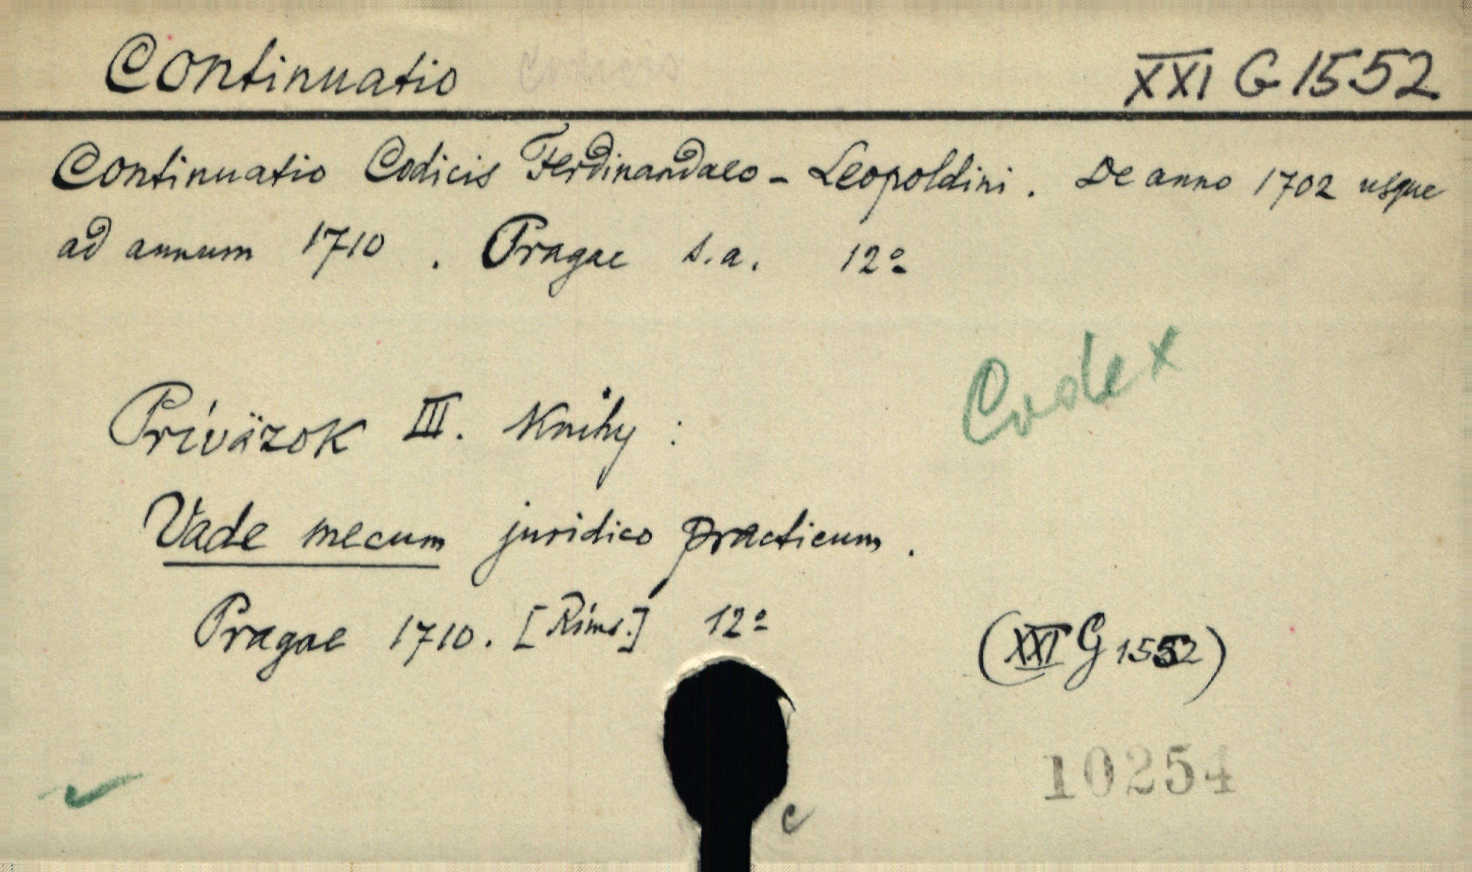 Continuatio Codicis XXI G 1552
Continuatio Codicis Ferdinandaeo - Leopoldini. De anno 1702 usque
ad annum 1710. Pragae s.a. 12º
Codex
Príväzok III. Knihy :
Vade mecum juridico practicum.
Pragae 1710. [Ríms.] 12º
(XXI G 1552)
10254
c